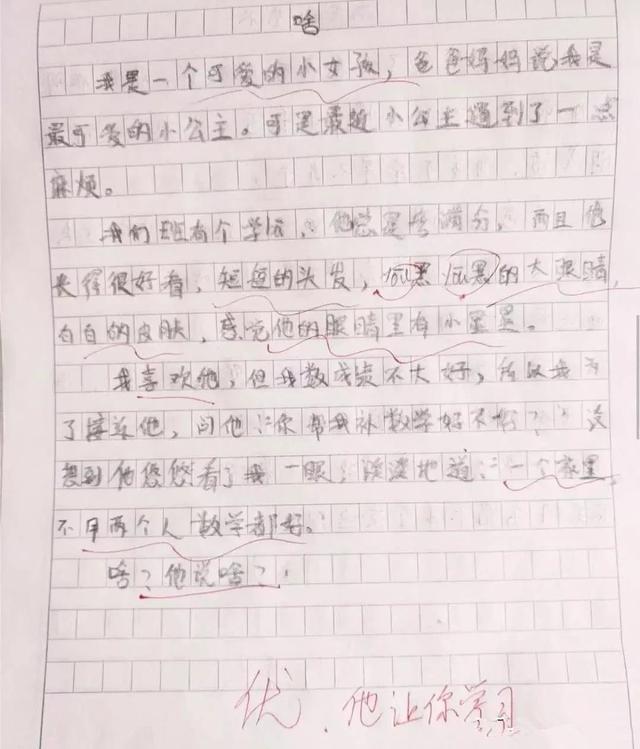 啥
我是一个可爱的小女孩，爸爸妈妈说我是
最可爱的小公主。可是最近小公主遇到了一点
麻烦。
我们班有个学霸，他总是考满分，而且他
长得很好看，短短的头发，黑黑的大眼睛，
白白的皮肤，感觉他的眼睛里有小星星。
我喜欢他，但我数成绩不大好，所以我为
了接近他，问他：“你帮我补数学好不好？”没
想到他悠悠看了我一眼，淡淡地道：“一个家里
不用两个人数学都好。
啥？他说啥？
优、他让你学习